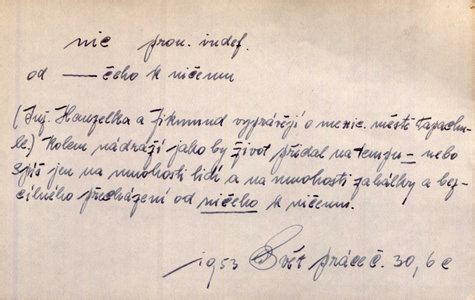 nic pron. indef.
od —čeho k ničemu
(Inž. Hanzelka a Zikmund vyprávějí o mexic. městě Tapachu-
le.) Kolem nádraží jako by život přidal na tempu – nebo
spíš jen na množství lidí a na množství zahálky a bez-
cílného přecházení od ničeho k ničemu.
1953 Svět práce č. 30, 6 c